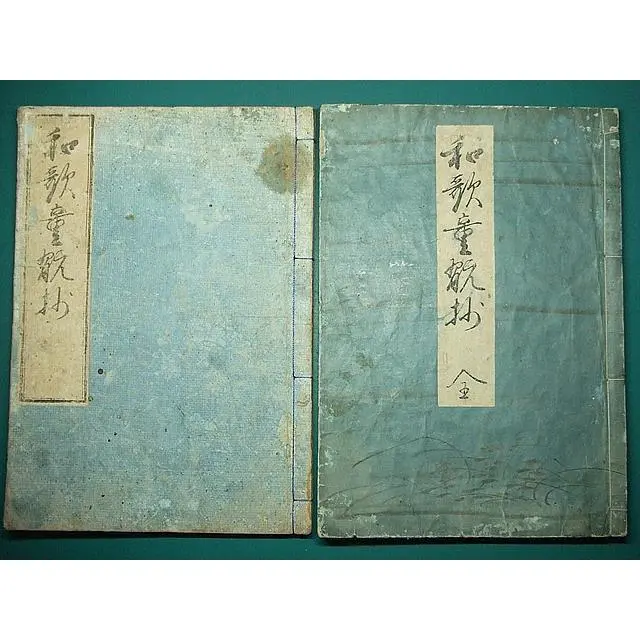 和歌童翫抄
和歌童翫抄 全